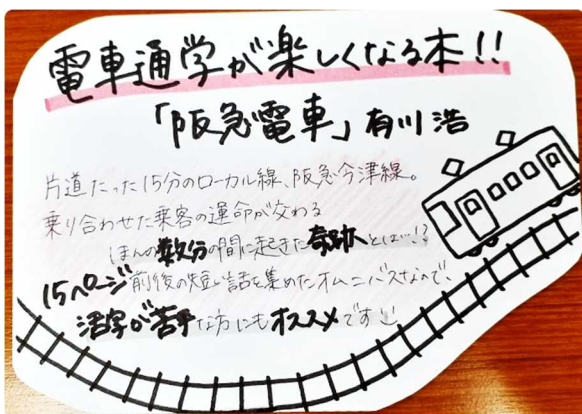 電車通学が楽しくなる本!!
「阪急電車」有川浩
片道たった15分のローカル線、阪急今津線。
乗り合わせた乗客の運命が交わる
ほんの数分の間に起きた奇跡とは…!?
15ページ前後の短い話を集めたオムニバスなので、
活字が苦手な方にもオススメです